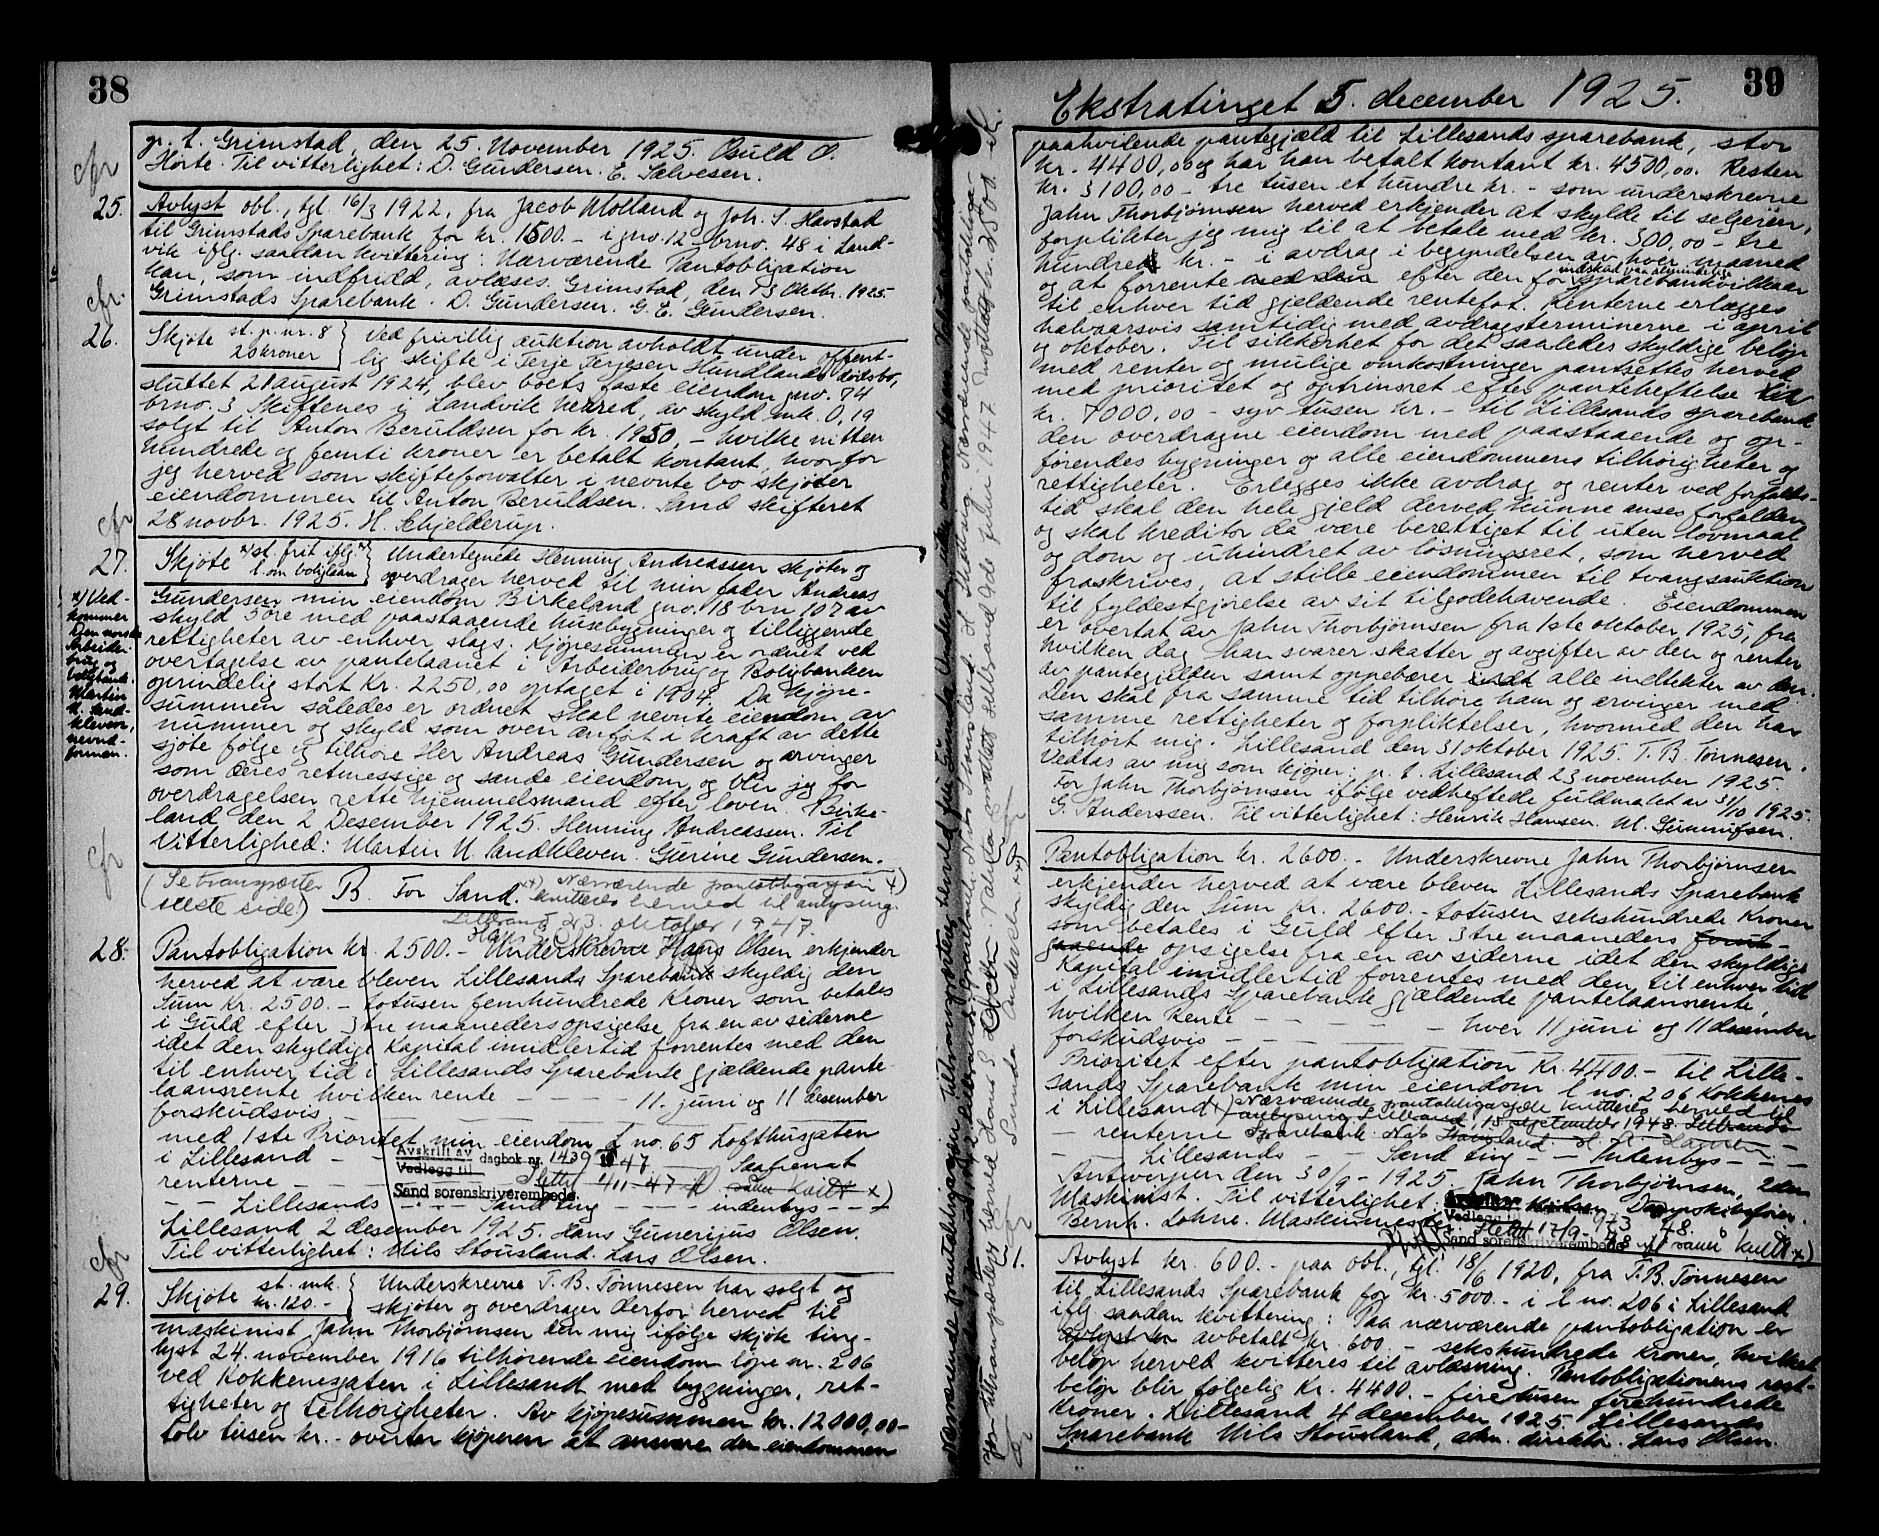 38
p. t. Grimstad, den 25. November 1925. Osuld O.
Hörte. Til vitterlighet: D. Gundersen. E. Salvesen.
cfr
25. Avlyst obl., tgl. 16/3 1922, fra Jacob Molland og Joh. S. Havstad
til Grimstads Sparebank for kr. 1500.- i gno. 12 brno. 48 i Land-
vik iflg. saadan kvittering: Nærværende Pantobligation
kan, som indfridd, avlæses. Grimstad, den 13 Oktbr. 1925.
Grimstads Sparebank. D. Gundersen. G. E. Gundersen.
cfr.
26. Skjøte st. p. nr. 8
20 kroner
Ved frivillig auktion avholdt under offent-
lig skifte i Terje Terjesen Hundlands dødsbo,
sluttet 21 august 1924, blev boets faste eiendom gno. 74
brno. 3 Skiftenes i Landvik herred, av skyld mk. 0,19
solgt til Anton Beruldsen for kr. 1950,- hvilke nitten
hundrede og femti kroner er betalt kontant, hvorfor
jeg herved som skifteforvalter i nevnte bo skjøter
eiendommen til Anton Beruldsen. Sand skifteret
28 novbr. 1925. H. Schjelderup.
cfr
27. Skjøte x) st. frit iflg. x)
l. om boliglaan
Undertegnede Henning Andreassen skjøter og
overdrager herved til min fader Andreas
Gundersen min eiendom Birkeland gno. 118 brn 107 av
skyld 5 øre med paastaaende husebygninger og tilliggende
rettigheter av enhver slags. Kjøpesummen er ordnet ved
overtagelse av pantelaanet i Arbeiderbrug og Boligbanken
oprindelig stort Kr. 2250,00 optaget i 1904. Da kjøpe-
summen således er ordnet skal nevnte eiendom av
nummer og skyld som oven anført i kraft av dette
sjøte følge og tilhøre Her Andreas Gundersen og arvinger
som deres retmessige og sande eiendom og blir jeg for
overdragelsen rette hjemmelsmand efter loven. Birke-
land den 2 Desember 1925. Henning Andreassen. Til
Vitterlighed: Martin N. Sandkleven. Gurine Gundersen.
x) Ved-
kommer
Den norske
Arbeider-
brug og
boligbank.
Martin
N. Sand-
kleven,
nevnd-
formen.
cfr
(Se transporter
neste side!)
B. For Sand.
x) Nærværende pantobligasjon
kvitteres herved til avlysing.
Lillesand 23. oktober 1947.
28. Pantobligation kr 2500.- Underskrevne Hans Olsen erkjender
herved at være bleven Lillesands Sparebank skyldig den
Sum Kr. 2500.- totusen femhundrede Kroner som betales
i Guld efter 3 tre maaneders opsigelse fra en av siderne
idet den skyldige Kapital imidlertid forrentes med den
til enhver tid i Lillesands Sparebank gjældende pante-
laansrente hvilken rente - - - - 11. juni og 11 desember
forskudsvis
med 1ste Prioritet min eiendom L no. 65 Lofthusgaten
i Lillesand - -
Avskrift av
Vedlegg til
dagbok nr. 1439 1947
renterne - - - -
Sand sorenskriverembede.
- - Lillesands - - - Sand ting - - - - indenbys - - -
Lillesand 2 desember 1925. Hans Gunerius Olsen.
Til vitterlighet: Nils Stousland. Lars Olsen.
cfr
29. Skjøte st. mk.
kr. 120.-
Underskrevne T. B. Tønnesen har solgt og
skjøter og overdrager derfor herved til
maskinist Jahn Thorbjørnsen den mig ifølge skjøte ting-
lyst 24. november 1916 tilhørende eiendom løpe nr. 206
ved Kokkenesgaten i Lillesand med bygninger, ret-
tigheter og tilhørigheter. Av kjøpesummen kr. 12000,00-
tolv tusen kr.- overtar kjøperen at ansvare den eiendommen
39
Ekstratinget 5. december 1925.
paahvilende pantegjæld til Lillesands sparebank, stor
kr. 4400,00 og har han betalt kontant kr. 4500,00. Resten
kr. 3100,00 - tre tusen et hundre kr. - som underskrevne
Jahn Thorbjørnsen herved erkjender at skylde til selgeren,
forplikter jeg mig til at betale med kr. 300,00 - tre
hundre kr. - i avdrag i begyndelsen av hver maaned
og at forrente med den efter den for indskud paa almindelige sparebankvilkaar
til enhver tid gjeldende rentefot. Renterne erlægges
halvaarsvis samtidig med avdragsterminerne i april
og oktober. Til sikkerhet for det saaledes skyldige beløp
med renter og mulige omkostninger pantsettes herved
med prioritet og optrinsret efter panteheftelse til
kr. 7000,00 - syv tusen kr. - til Lillesands sparebank
den overdragne eiendom med paastaaende og op-
førendes bygninger og alle eiendommens tilhørigheter og
rettigheter. Erlegges ikke avdrag og renter ved forfalds-
tid skal den hele gjeld derved kunne anses forfalden
og skal kreditor da være berettiget til uten lovmaal
og dom og uhindret av løsningsret, som herved
fraskrives, at stille eiendommen til tvangsauktion
til fyldestgjørelse av sit tilgodehavende. Eiendommen
er overtat av Jahn Thorbjørnsen fra 1ste oktober 1925, fra
hvilken dag han svarer skatter og avgifter av den og renter
av pantegjelden samt oppebærer alle indtekter av den.
Den skal fra samme tid tilhøre ham og arvinger med
samme rettigheter og forpliktelser, hvormed den har
tilhørt mig. Lillesand den 31 oktober 1925. T. B. Tønnesen.
Vedtas av mig som kjøper: p. t. Lillesand 23 november 1925.
For Jahn Thorbjørnsen ifølge vedheftede fuldmakt av 31/10 1925.
G. Anderssen. Til vitterlighet: Henrik Hansen. M. Gunnufsen.
Pantobligation kr. 2600.- Underskrevne Jahn Thorbjørnsen
erkjender herved at være bleven Lillesands Sparebank
skyldig den Sum Kr. 2600.- totusen sekshundrede Kroner
som betales i Guld efter 3 tre maaneders forut-
gaaende opsigelse fra en av siderne idet den skyldige
Kapital imidlertid forrentes med den til enhver tid
i Lillesands Sparebank gjældende pantelaansrente,
hvilken Rente - - - - - - hver 11 juni og 11 desember
forskudsvis - - - - -
Prioritet efter pantobligation Kr. 4400.- til Lille-
sands Sparebank min eiendom l no. 206 Kokkenes
i Lillesand x) Nærværende pantobligasjon kvitteres herved til
avlysning. Lillesand, 15 september 1948. Lillesands
- renterne Sparebank. Nils Stousland.
- Lillesands - - Sand ting - - Indenbys - - -
Antwerpen den 30/9 - 1925. Jahn Thorbjørnsen, 2den
Maskinist. Til vitterlighet:
Bernh. Lohne. Maskinmester.
Vedlegg til
Sand sorenskriverembede
31. Avlyst kr. 600.- paa obl., tgl. 18/6 1920, fra T. B. Tønnesen
til Lillesands Sparebank for kr. 5000.- i l no. 206 i Lillesand
iflg saadan kvittering: Paa nærværende pantobligation er
avbetalt kr. 600.- sekshundrede Kroner, hvilket
beløp herved kvitteres til avlæsning. Pantobligationens rest-
beløp blir følgelig Kr. 4400.- firetusen firehundrede
Kroner. Lillesand 4 desember 1925. Lillesands
Sparebank Nils Stousland, adm. direktør. Lars Olsen.